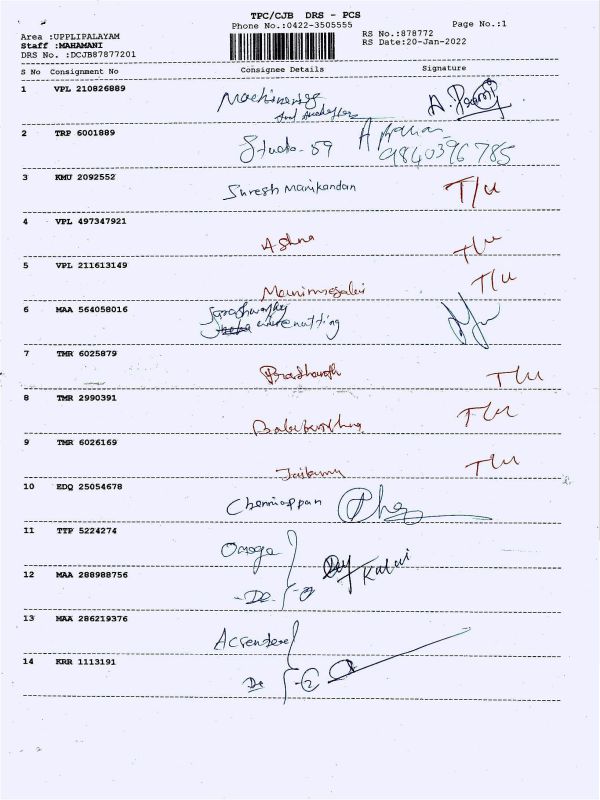 TPC/CJB DRS - PCS
Phone No.:0422-3505555
Page No.:1
Area :UPPLIPALAYAM
Staff :MAHAMANI
DRS No. :DCJB87877201
RS No.:878772
RS Date:20-Jan-2022
S No Consignment No Consignee Details Signature
1 VPL 210826889
2 TRP 6001889
Studio-59
9840396785
3 KMU 2092552 Suresh Manikandan T/u
4 VPL 497347921
Ashna T/u
5 VPL 211613149 T/u
Manimegalai
6 MAA 564058016
7 TMR 6025879
Prashanth T/u
8 TMR 2990391
T/u
9 TMR 6026169
T/u
10 EDQ 25054678
Chenniappan
11 TTP 5224274
Omega
12 MAA 288988756 Kalai
-Do-
13 MAA 286219376
14 KRR 1113191
Do